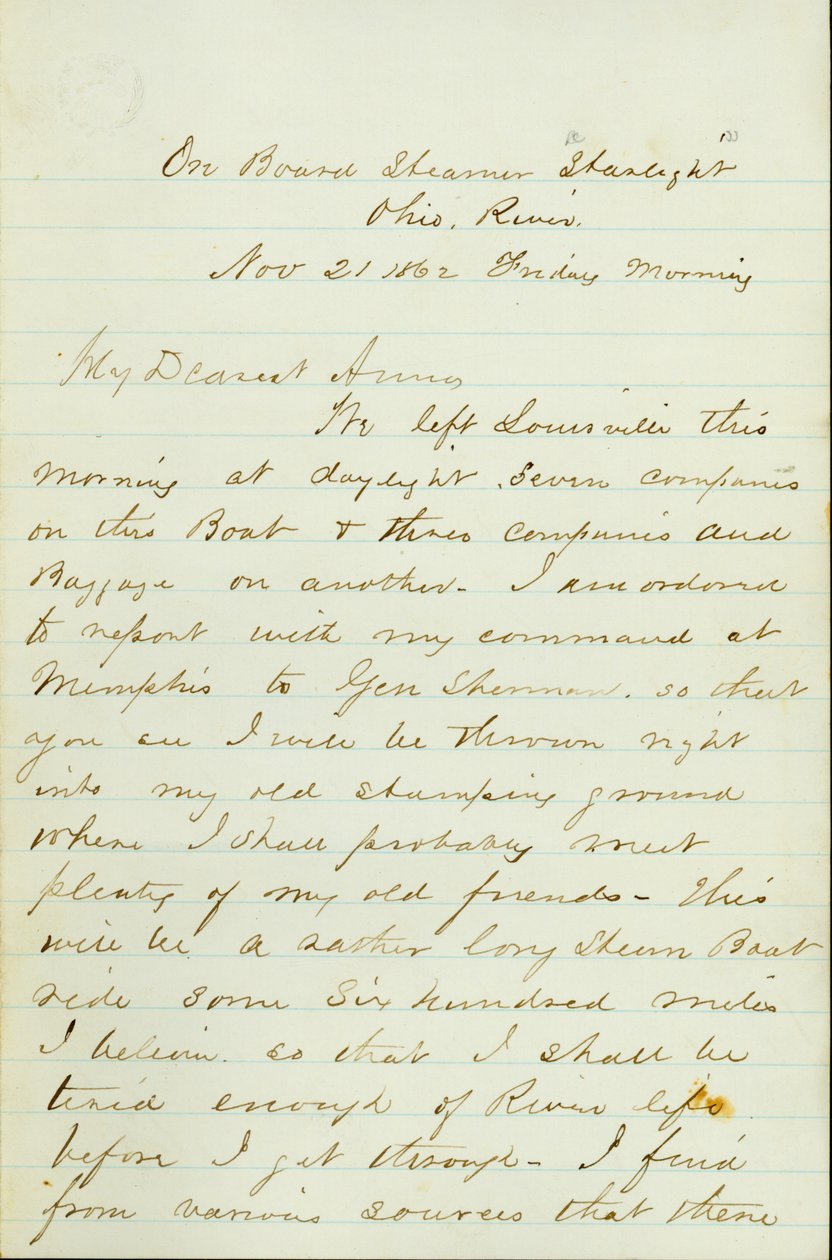 On Board Steamer Starlight
Ohio. River.
Nov 21 1862 Friday Morning
My Dearest Anna
We left Louisville this
morning at daylight. Seven companies
on this Boat & three companies and
Baggage on another - I am ordered
to report with my command at
Memphis to Gen Sherman. so that
you see I will be thrown right
into my old stamping ground
where I shall probably meet
plenty of my old friends - This
will be a rather long Steam Boat
ride some Six hundred miles
I believe. so that I shall be
tired enough of River life
before I get through - I find
from various sources that there